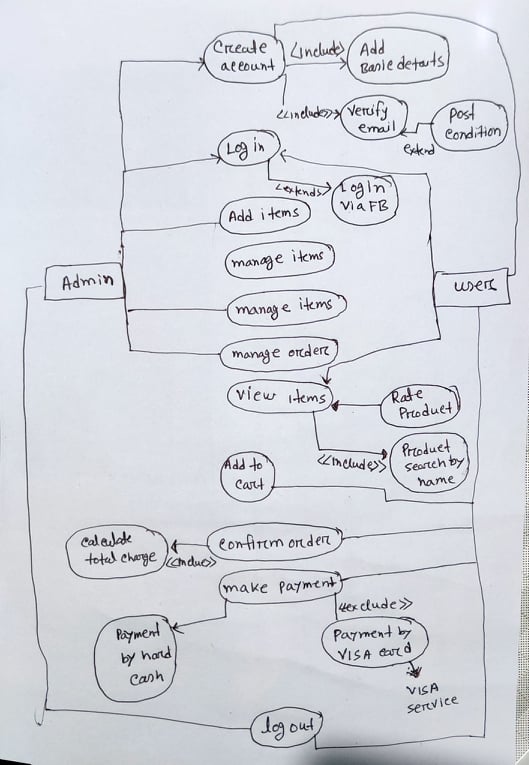 Create
account
<Include>
Add
Basic details
<<include>>
Verify
email
Post
condition
extend
Log in
<extends>
Log In
Via FB
Add items
manage items
Admin
users
manage items
manage order
View items
Rate
Product
<<Include>>
Product
search by
name
Add to
cart
calculate
total charge
confirm order
make payment
<<exclude>>
Payment
by hard
cash
Payment by
VISA card
VISA
service
log out